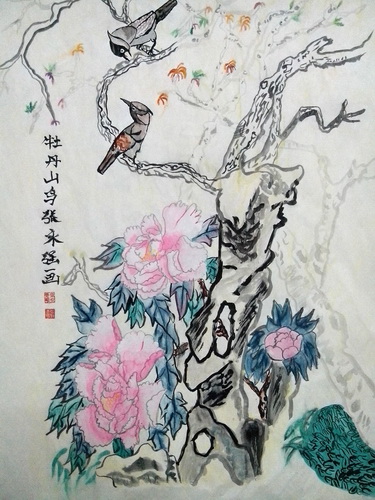 牡丹山鸟张永强画